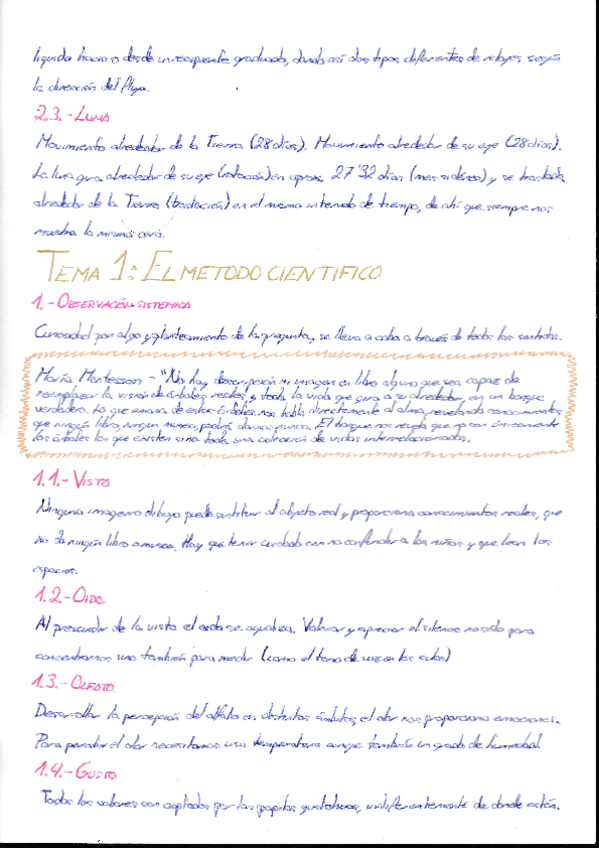 líquida hacia o desde un recipiente graduado, dando así dos tipos diferentes de relojes según
la dirección del flujo.
2.3.- LUNA
Movimiento alrededor de la Tierra (28 días). Movimiento alrededor de su eje (28 días).
La luna gira alrededor de su eje (rotación) en aprox. 27'32 días (mes sidéreo) y se traslada
alrededor de la Tierra (traslación) en el mismo intervalo de tiempo, de ahí que siempre nos
muestra la misma cara.
TEMA 1: EL METODO CIENTIFICO
1.- OBSERVACIÓN SISTEMICA
Curiosidad por algo y planteamiento de la pregunta, se lleva a cabo a través de todos los sentidos.
María Montessori - "No hay descripción ni imagen en libro alguno que sea capaz de
reemplazar la visión de árboles reales y toda la vida que gira a su alrededor, en un bosque
verdadero. Lo que emana de estos árboles nos habla directamente al alma, revelando conocimientos
que ningún libro, ningún museo, podrá darnos nunca. El bosque nos revela que no son únicamente
los árboles los que existen sino toda una colección de vidas interrelacionadas.
1.1.- VISTA
Ninguna imagen o dibujo puede sustituir al objeto real y proporciona conocimientos reales, que
no da ningún libro o museo. Hay que tener cuidado con no confundir a los niños y que lean los
espacios.
1.2.- OIDO.
Al prescindir de la vista el oido se agudiza. Valorar y apreciar el silencio no sólo para
concentrarnos sino también para medir (como el tono de voz en las aulas)
1.3.- OLFATO.
Desarrollar la percepción del olfato en distintos ámbitos, el olor nos proporciona emociones.
Para percibir el olor necesitamos una temperatura aunque también un grado de humedad.
1.4.- GUSTO
Todos los sabores son captados por las papilas gustativas, indiferentemente de donde estén.